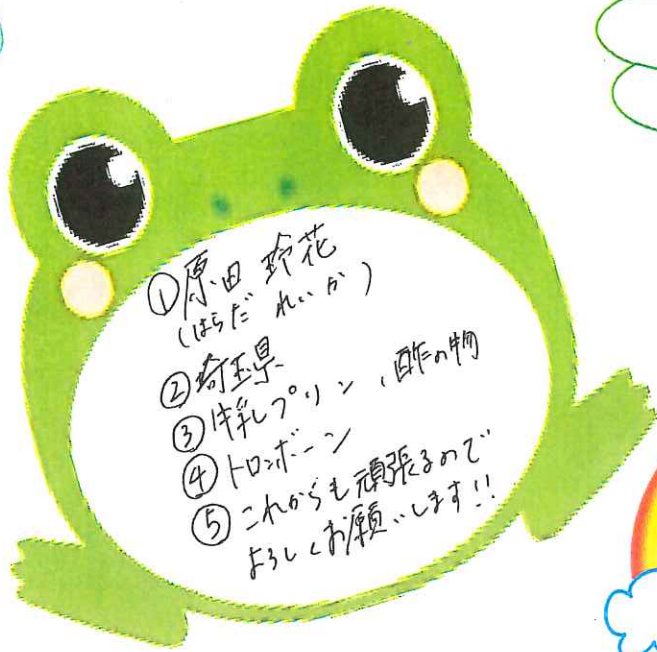 ①原田 玲花
(はらだ れいか)
②埼玉県
③牛乳プリン、酢の物
④トロンボーン
⑤これからも頑張るので
よろしくお願いします!!